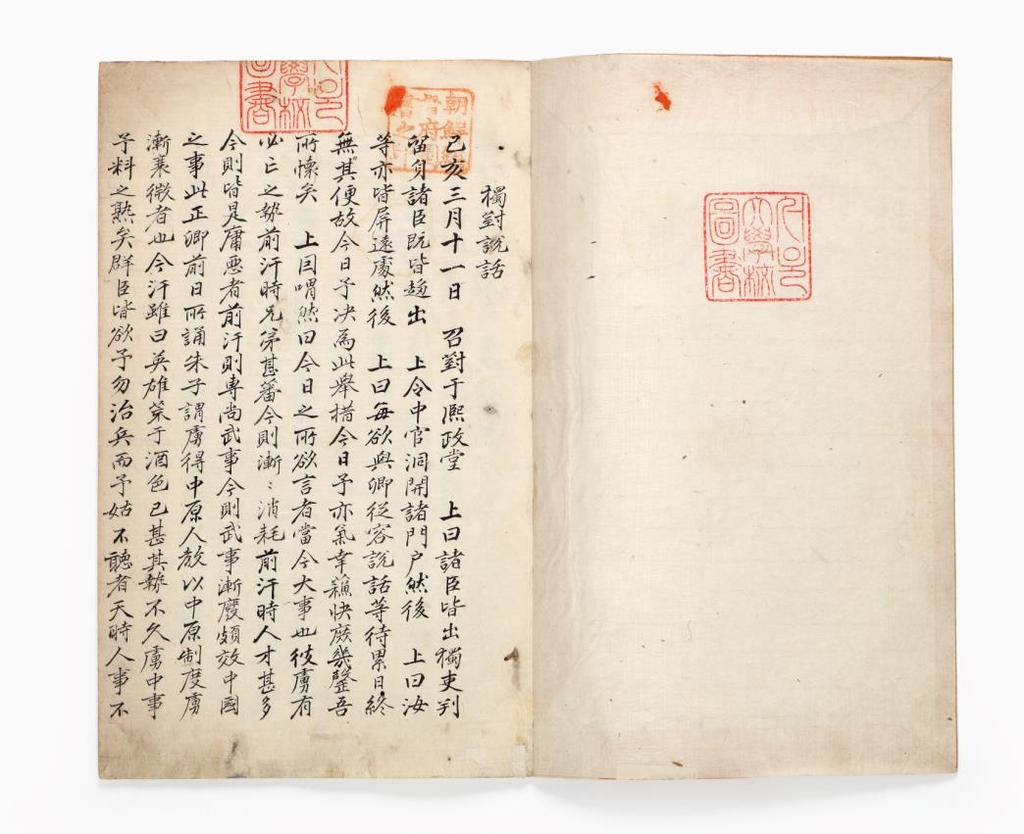 朝鮮總
督府圖
書之印
大學校
圖書
獨對說話
己亥三月十一日　召對于熙政堂　上曰諸臣皆出獨吏判
留身諸臣旣皆趨出　上令中官洞開諸門戶然後　上曰汝
等亦皆屛遠處然後　上曰每欲與卿從容說話等待累日終
無其便故今日予决爲此擧措今日予亦氣幸蘓快庶幾罄吾
所懷矣　上因喟然曰今日之所欲言者當今大事也彼虜有
必亡之勢前汗時兄弟甚蕃今則漸〻消耗前汗時人才甚多
今則皆是庸惡者前汗則專尙武事今則武事漸廢頗效中國
之事此正卿前日所誦朱子謂虜得中原人敎以中原制度虜
漸衰微者也今汗雖曰英雄荒于酒色已甚其勢不久虜中事
予料之熟矣群臣皆欲予勿治兵而予姑不聽者天時人事不
大學校
圖書